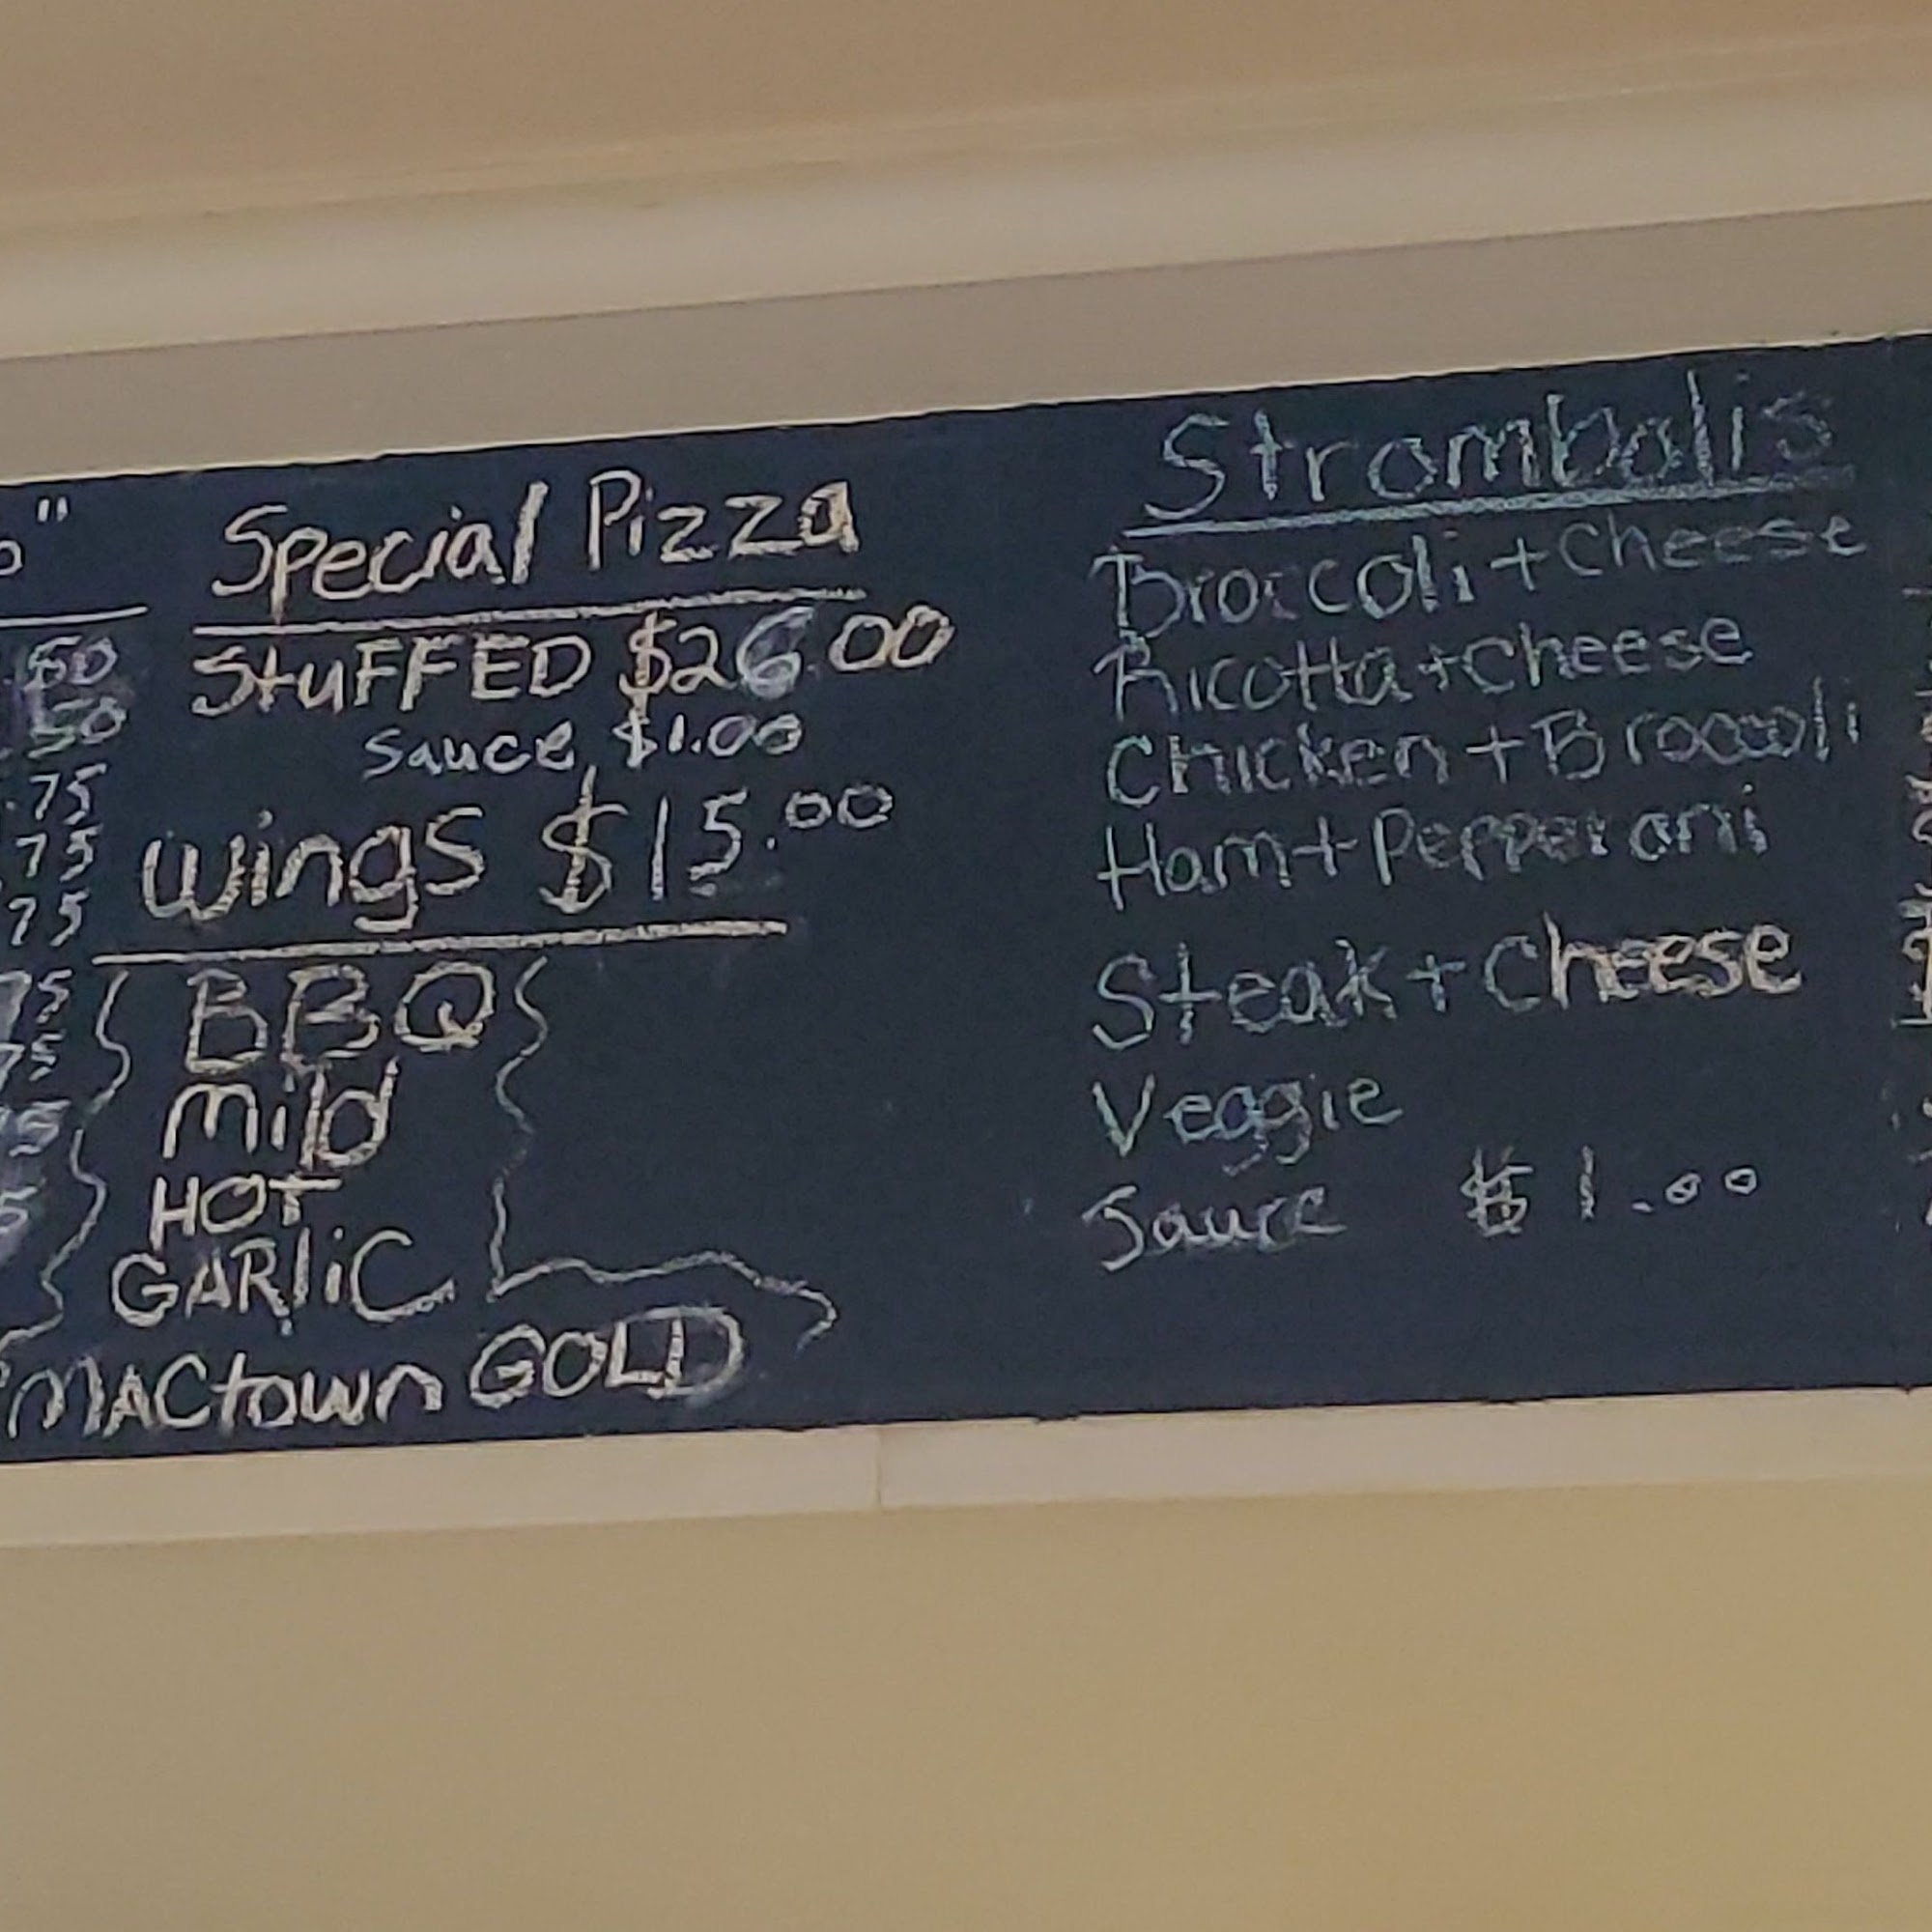 "
.50
.50
.75
.75
75
75
75
75
5
Special Pizza
StuFFED $26.00
Sauce $1.00
Wings $15.00
BBQ
Mild
HOT
GARliC
MACtown GOLD
Strombolis
Broccoli + Cheese
Ricotta + Cheese
Chicken + Broccoli
Ham + Pepperoni
Steak + Cheese
Veggie
Sauce $1.00